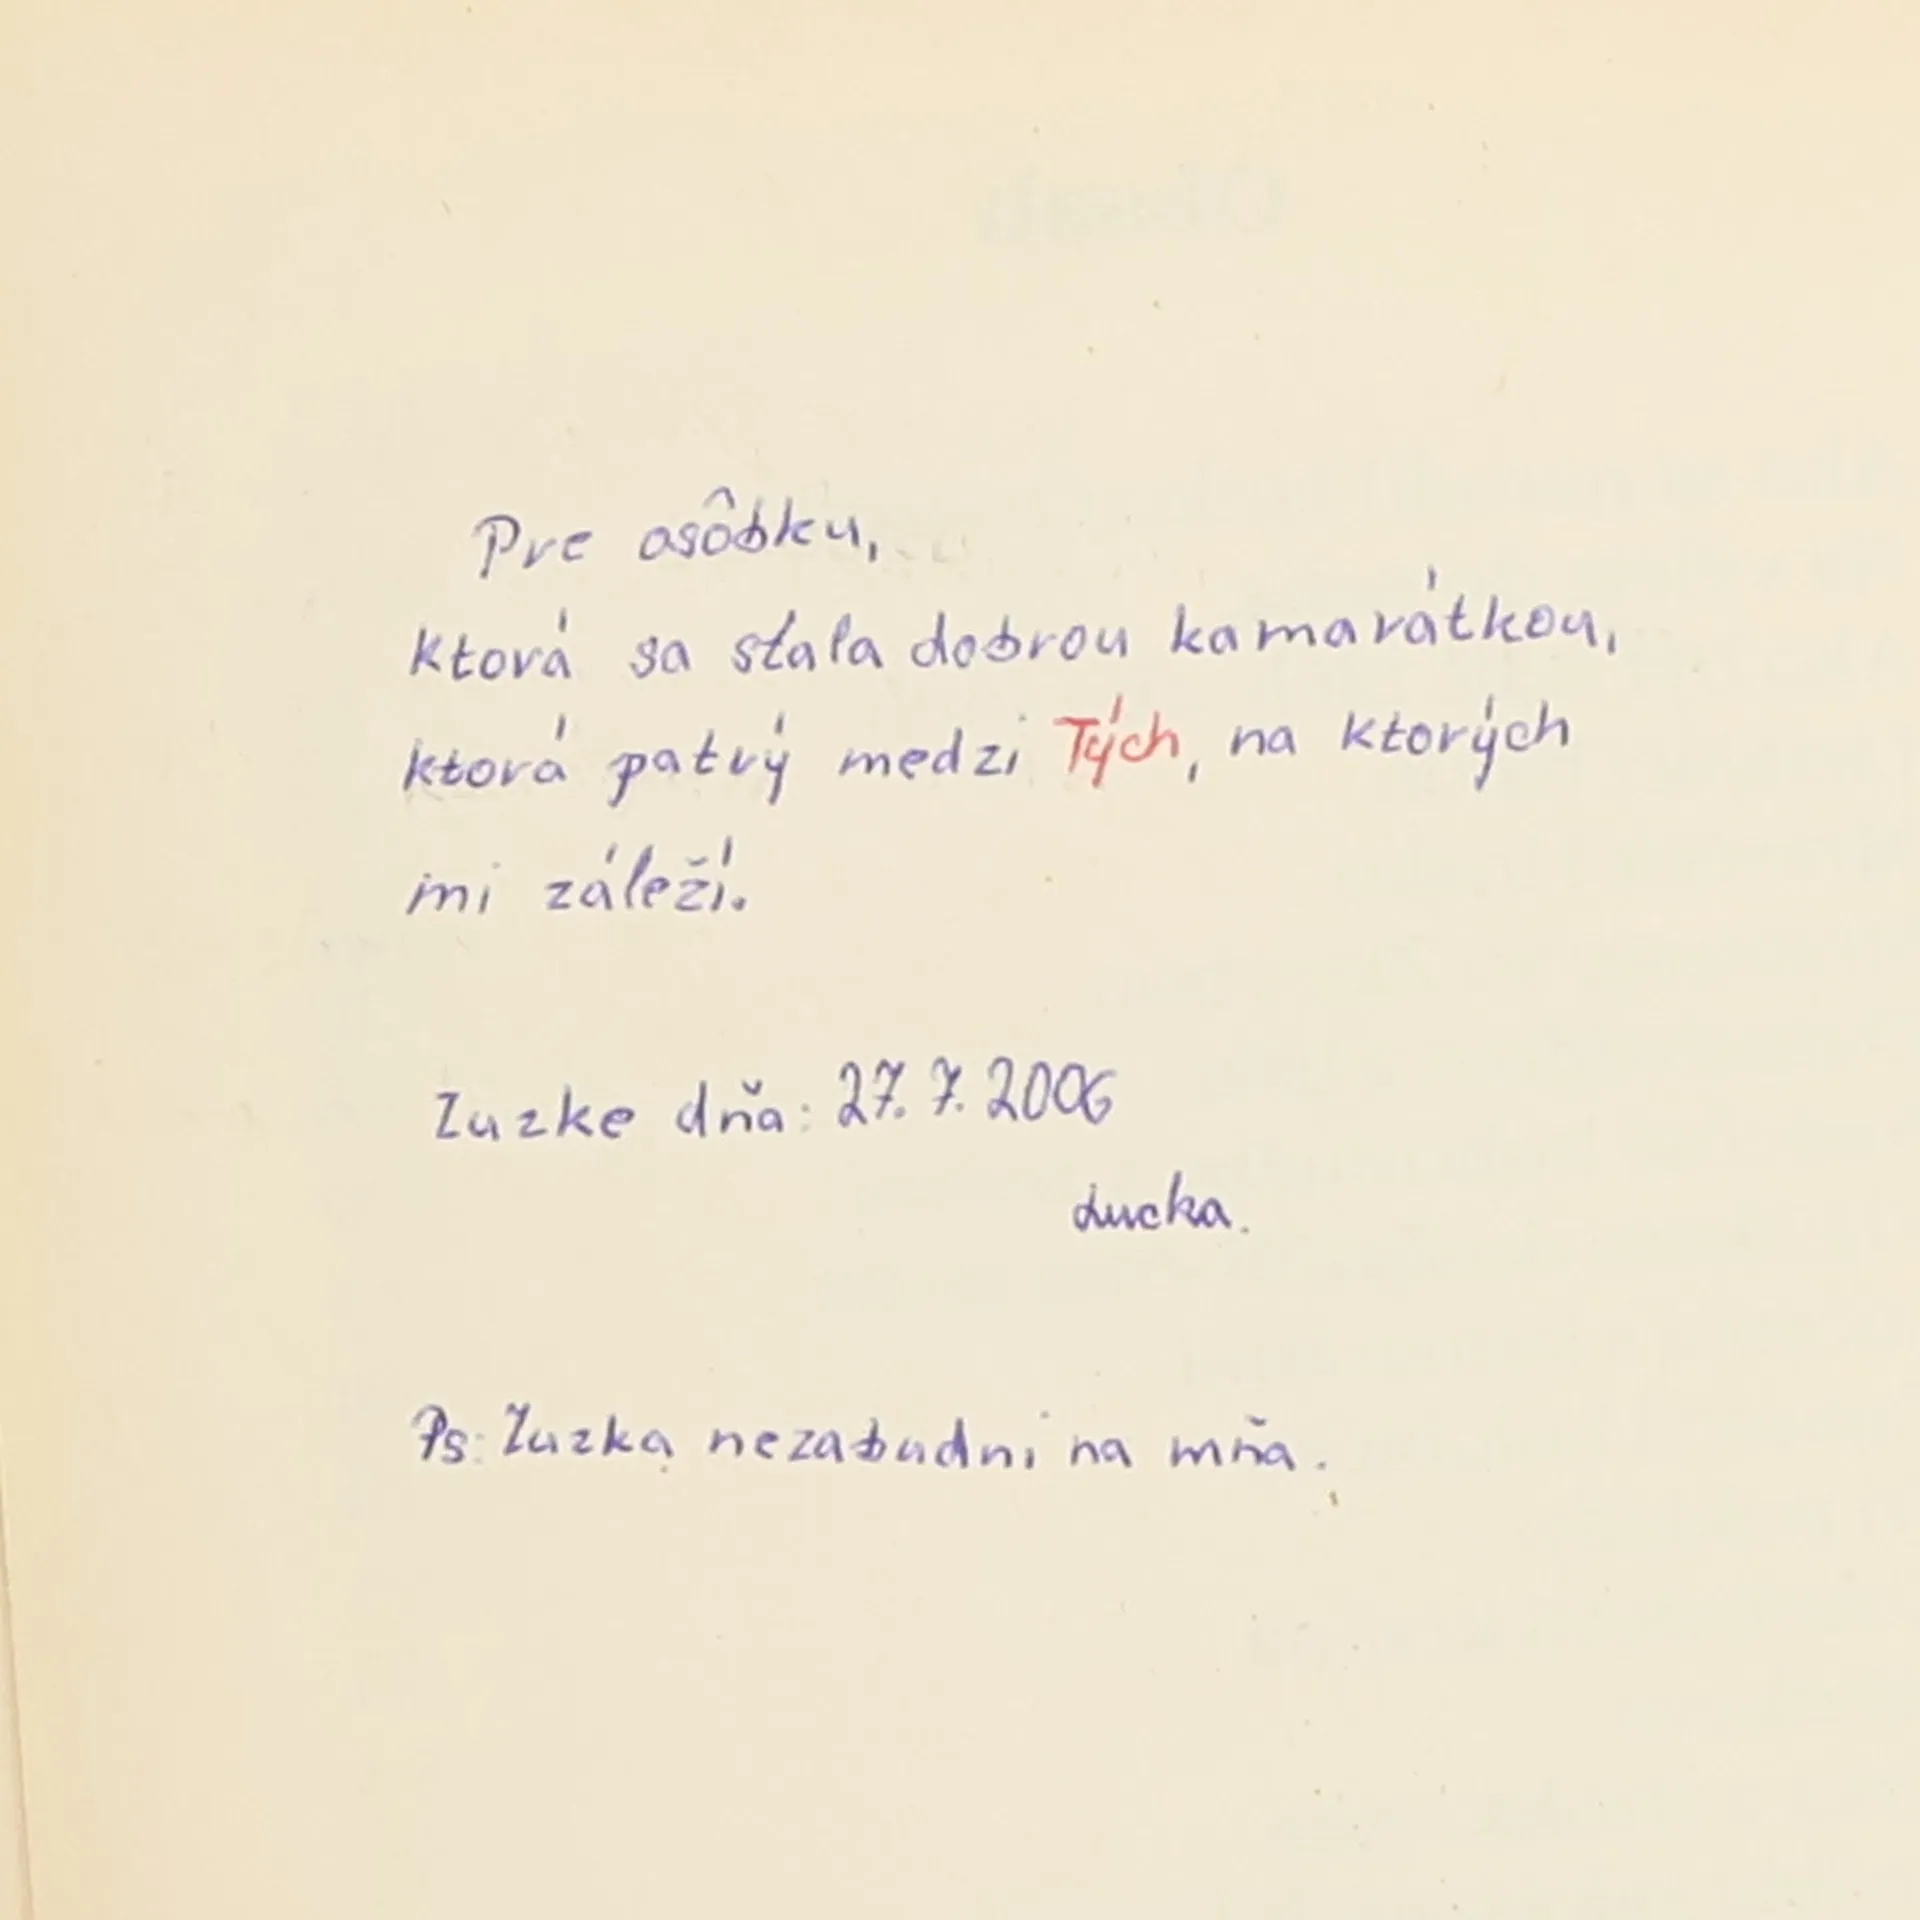 Pre osôbku,
ktorá sa stala dobrou kamarátkou,
ktorá patrý medzi Tých, na ktorých
mi záleží.
Zuzke dňa: 27. 7. 2006
Lucka.
Ps: Zuzka nezabudni na mňa.